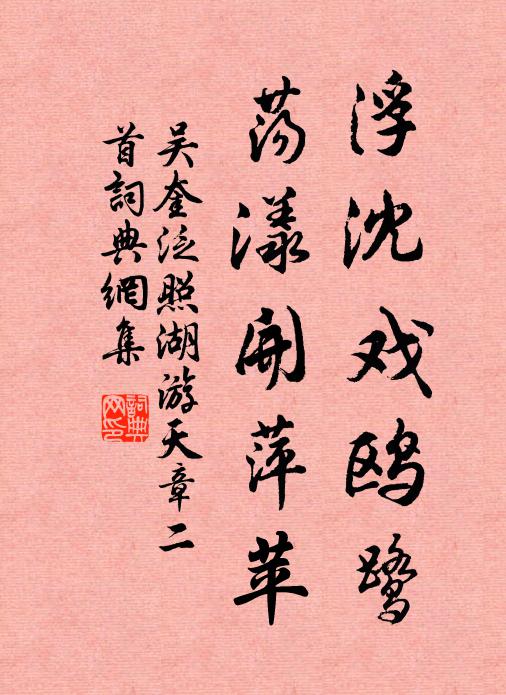 浮沈戏鸥鹭
荡漾开萍苹
吴奎泛照湖游天章二
首詞典網集
詞典
网印